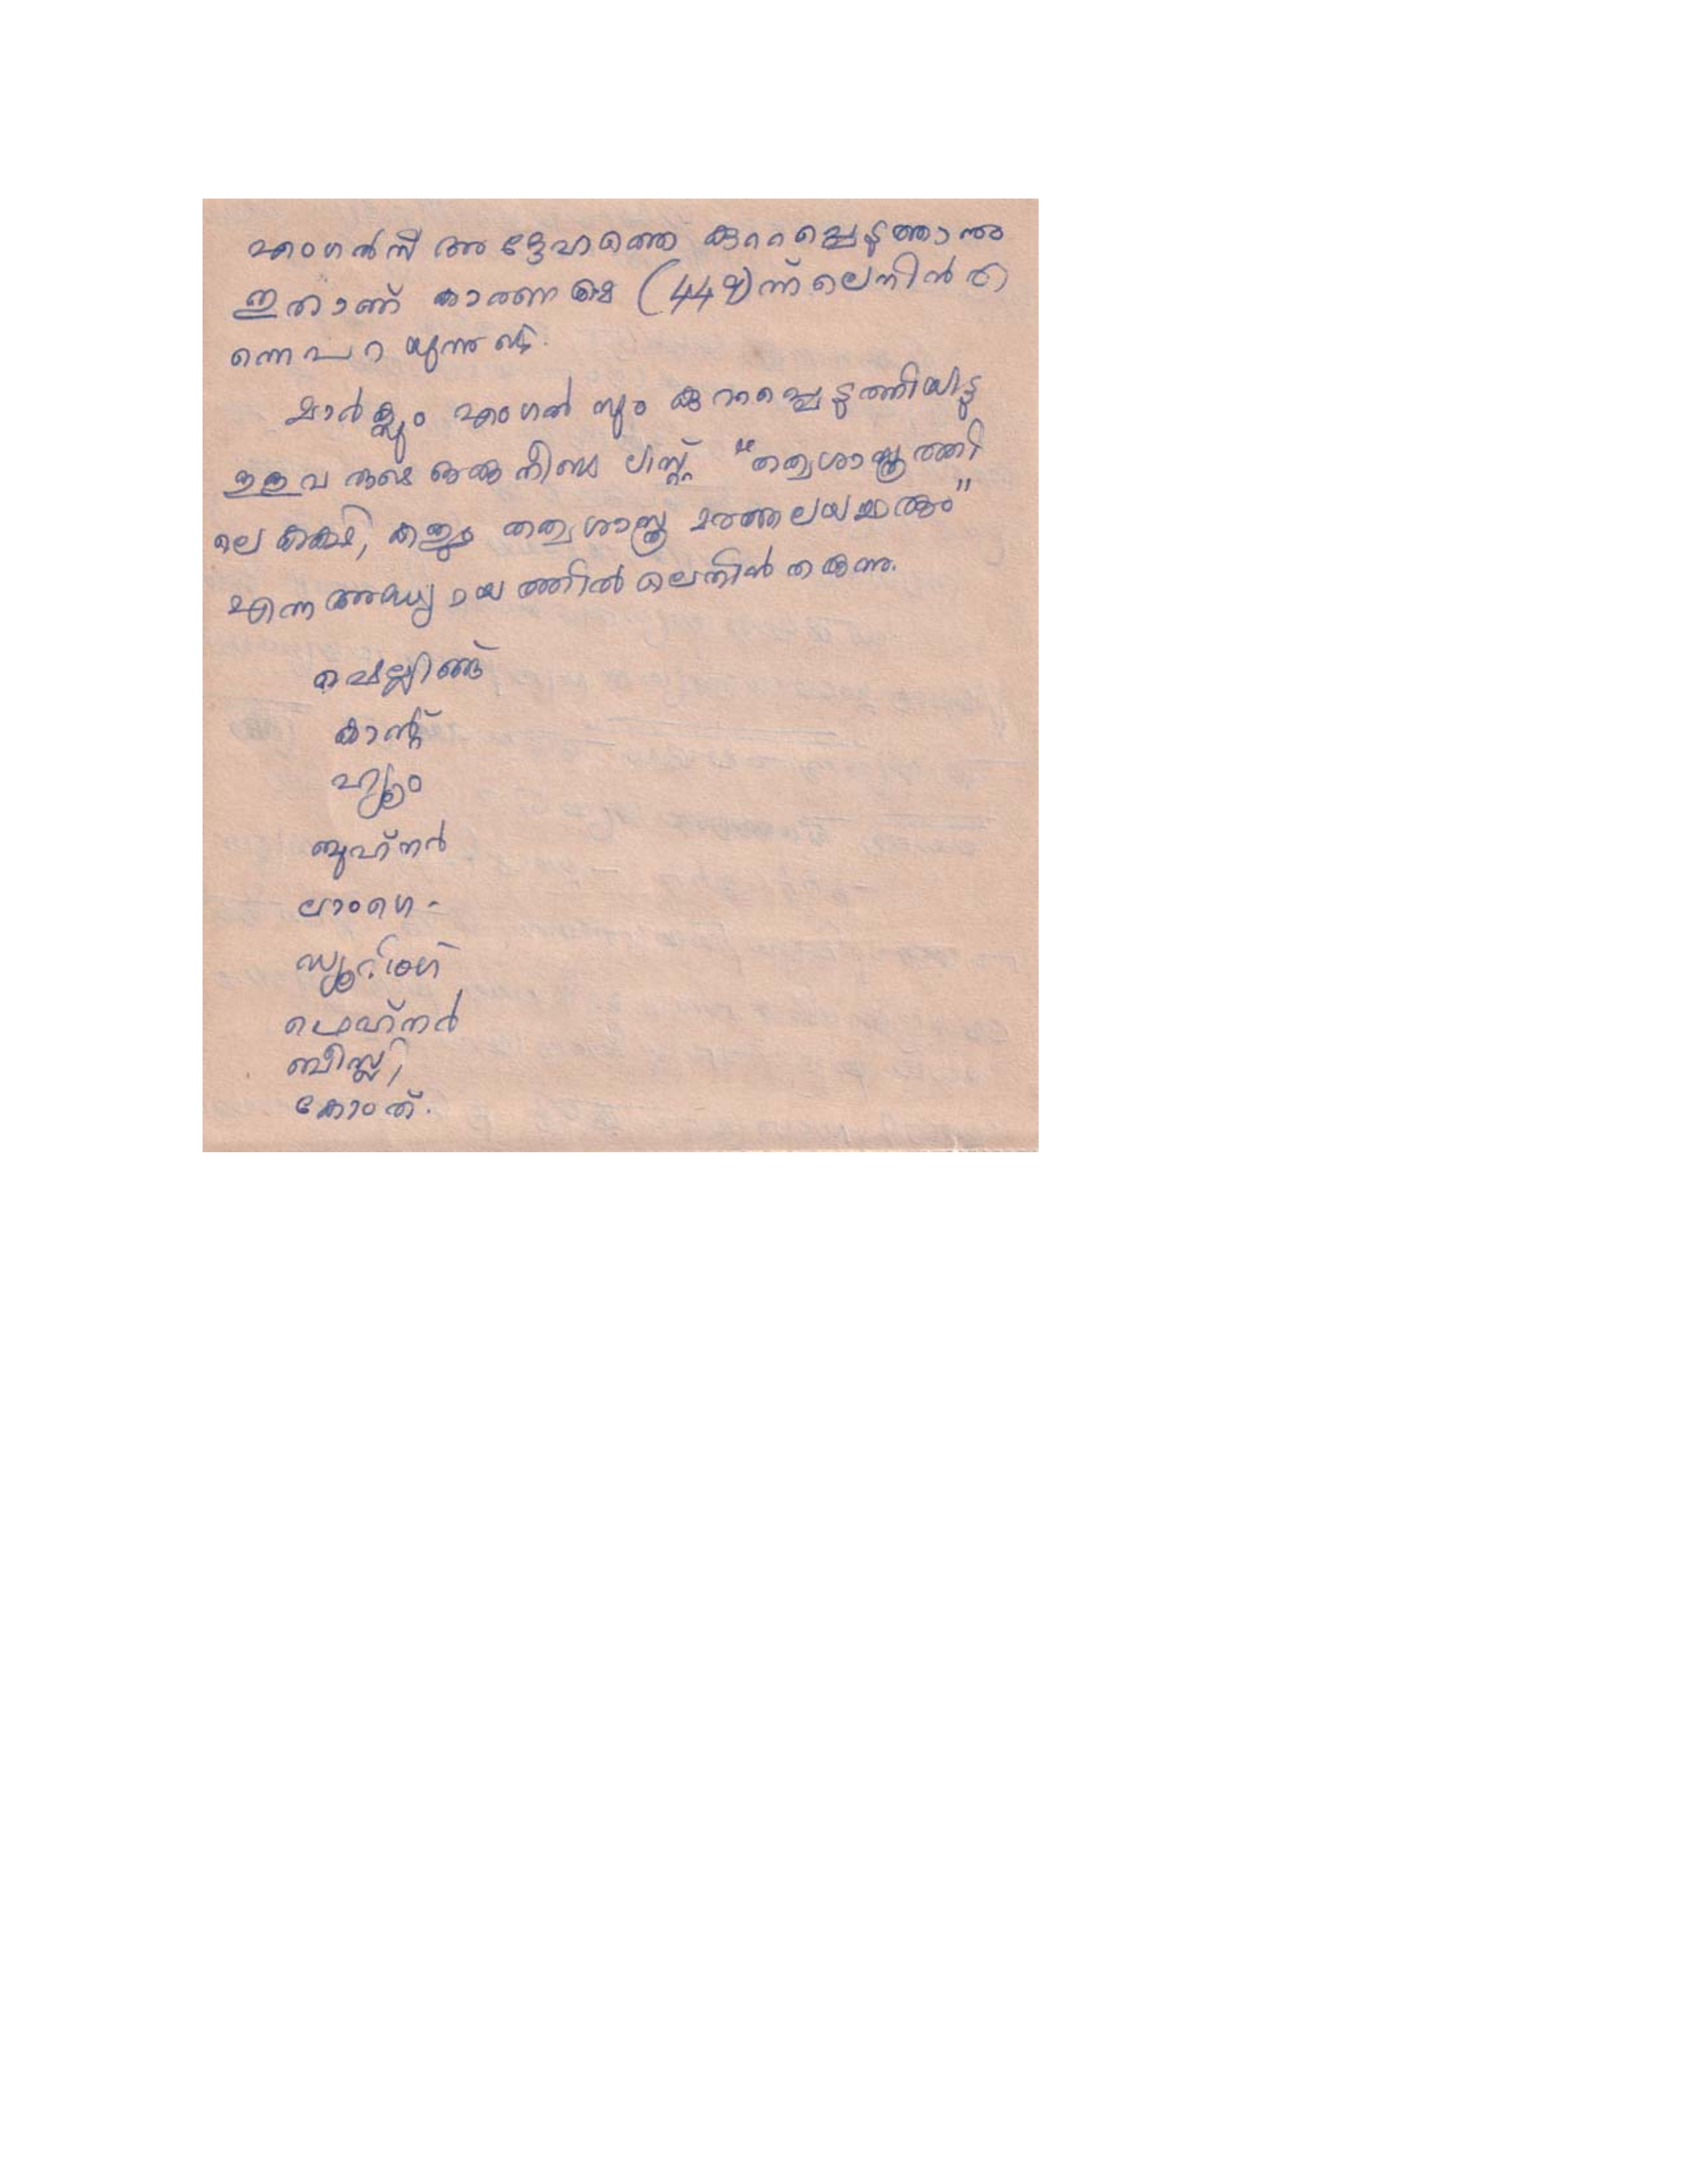 എംഗൽസ് അദ്ദേഹത്തെ കുററപ്പെടുത്താനും
ഇതാണ് കാരണമെ (449)ന്ന് ലെനിൻ ത
ന്നെ പറയുന്നുണ്ട്.
മാർക്സും എംഗൽസും കുററപ്പെടുത്തിയിട്ടു
ള്ളവരുടെ ഒരു നീണ്ട ലിസ്റ്റ് "തത്വശാസ്ത്രത്തി
ലെ കക്ഷി, കളും തത്വശാസ്ത്ര മരത്തലയന്മാരും"
എന്ന അദ്ധ്യായത്തിൽ ലെനിൻ തരുന്നു.
ഷെല്ലിങ്ങ്
കാന്റ്
ഹ്യൂം
ബുഹ്നർ
ലാംഗെ -
ഡ്യൂറിംഗ്
ഫെഹ്നർ
ബീസ്ലി,
കോംത്.